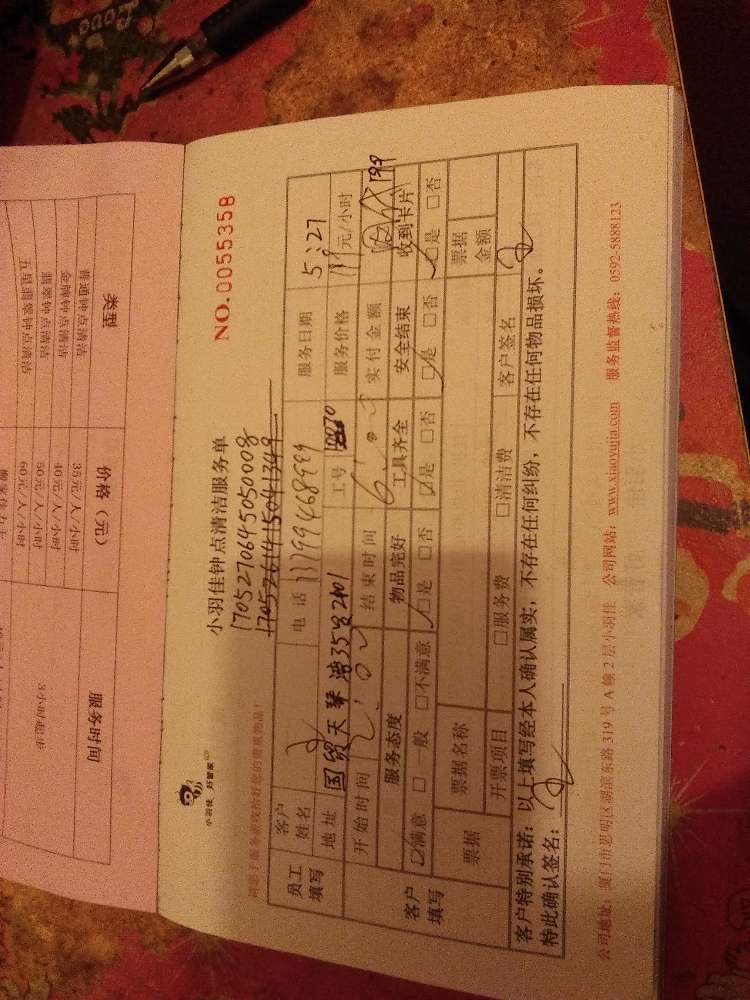 类型 价格（元） 服务时间
普通钟点清洁 35元/人/小时
金牌钟点清洁 40元/人/小时
翡翠钟点清洁 50元/人/小时
五星翡翠钟点清洁 60元/人/小时
小羽佳 好管家
小羽佳钟点清洁服务单
NO.0055358
1705270645050008
1705261415041349
员工填写 客户姓名 电话 13799468999 服务日期 5:27
地址 国贸天琴湾35号2401 工号 服务价格 元/小时
开始时间 结束时间 实付金额
客户填写 服务态度 物品完好 工具齐全 安全结束 收到卡片
☑满意 □一般 □不满意 ☑是 □否 ☑是 □否 ☑是 □否 ☑是 □否
票据 票据名称 票据金额
开票项目 □服务费 □清洁费 客户签名
客户特别承诺：以上填写经本人确认属实，不存在任何纠纷，不存在任何物品损坏。
特此确认签名：
公司地址：厦门市思明区湖滨东路319号A幢2层小羽佳 公司网站：www.xiaoyujia.com 服务监督热线：0592-5888123